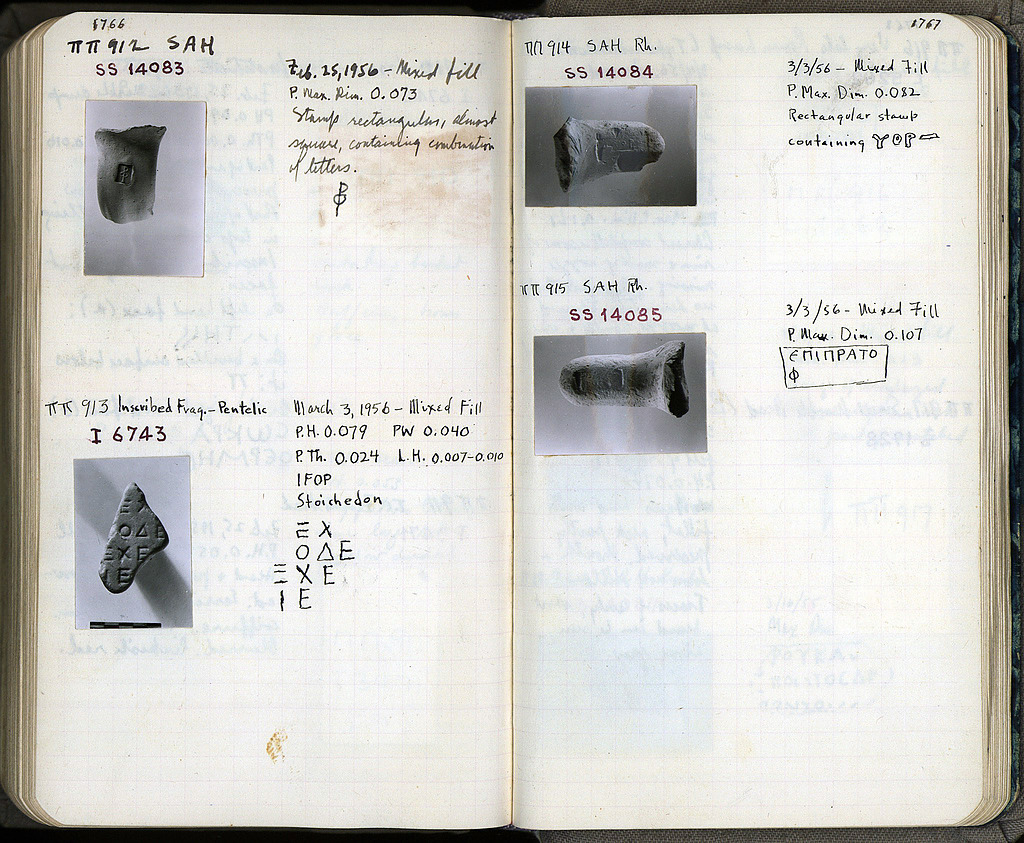 1766
ΠΠ 912 SAH
SS 14083
Feb. 25, 1956 – Mixed fill
P. Max. Dim. 0.073
Stamp rectangular, almost
square, containing combination
of letters.
ΠΠ 913 Inscribed Frag. – Pentelic
I 6743
March 3, 1956 – Mixed Fill
P.H. 0.079 PW 0.040
P. Th. 0.024 L.H. 0.007–0.010
IFOP
Stoichedon
Ξ Χ
Ο Δ Ε
Ξ Χ Ε
Ι Ε
1767
ΠΠ 914 SAH Rh.
SS 14084
3/3/56 – Mixed Fill
P. Max. Dim. 0.082
Rectangular stamp
containing
ΠΠ 915 SAH Rh.
SS 14085
3/3/56 – Mixed Fill
P. Max. Dim. 0.107
ΕΠΙΠΡΑΤΟ
Φ